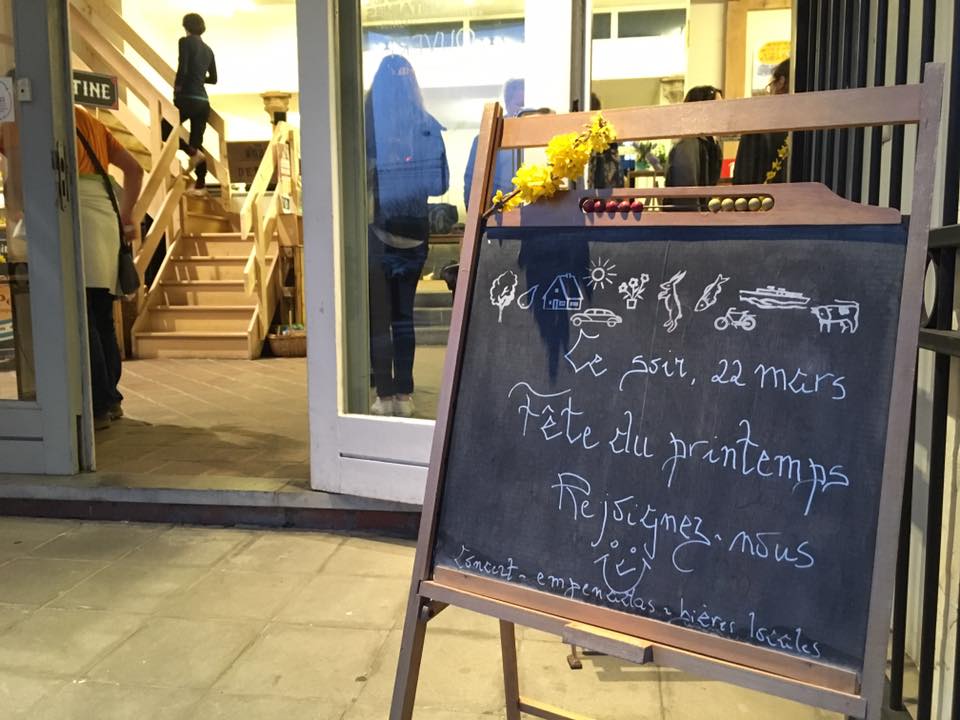 OUVERT
TINE
Ce soir, 22 mars
Fête du printemps
Rejoignez-nous
Concert - empenadas - bières locales